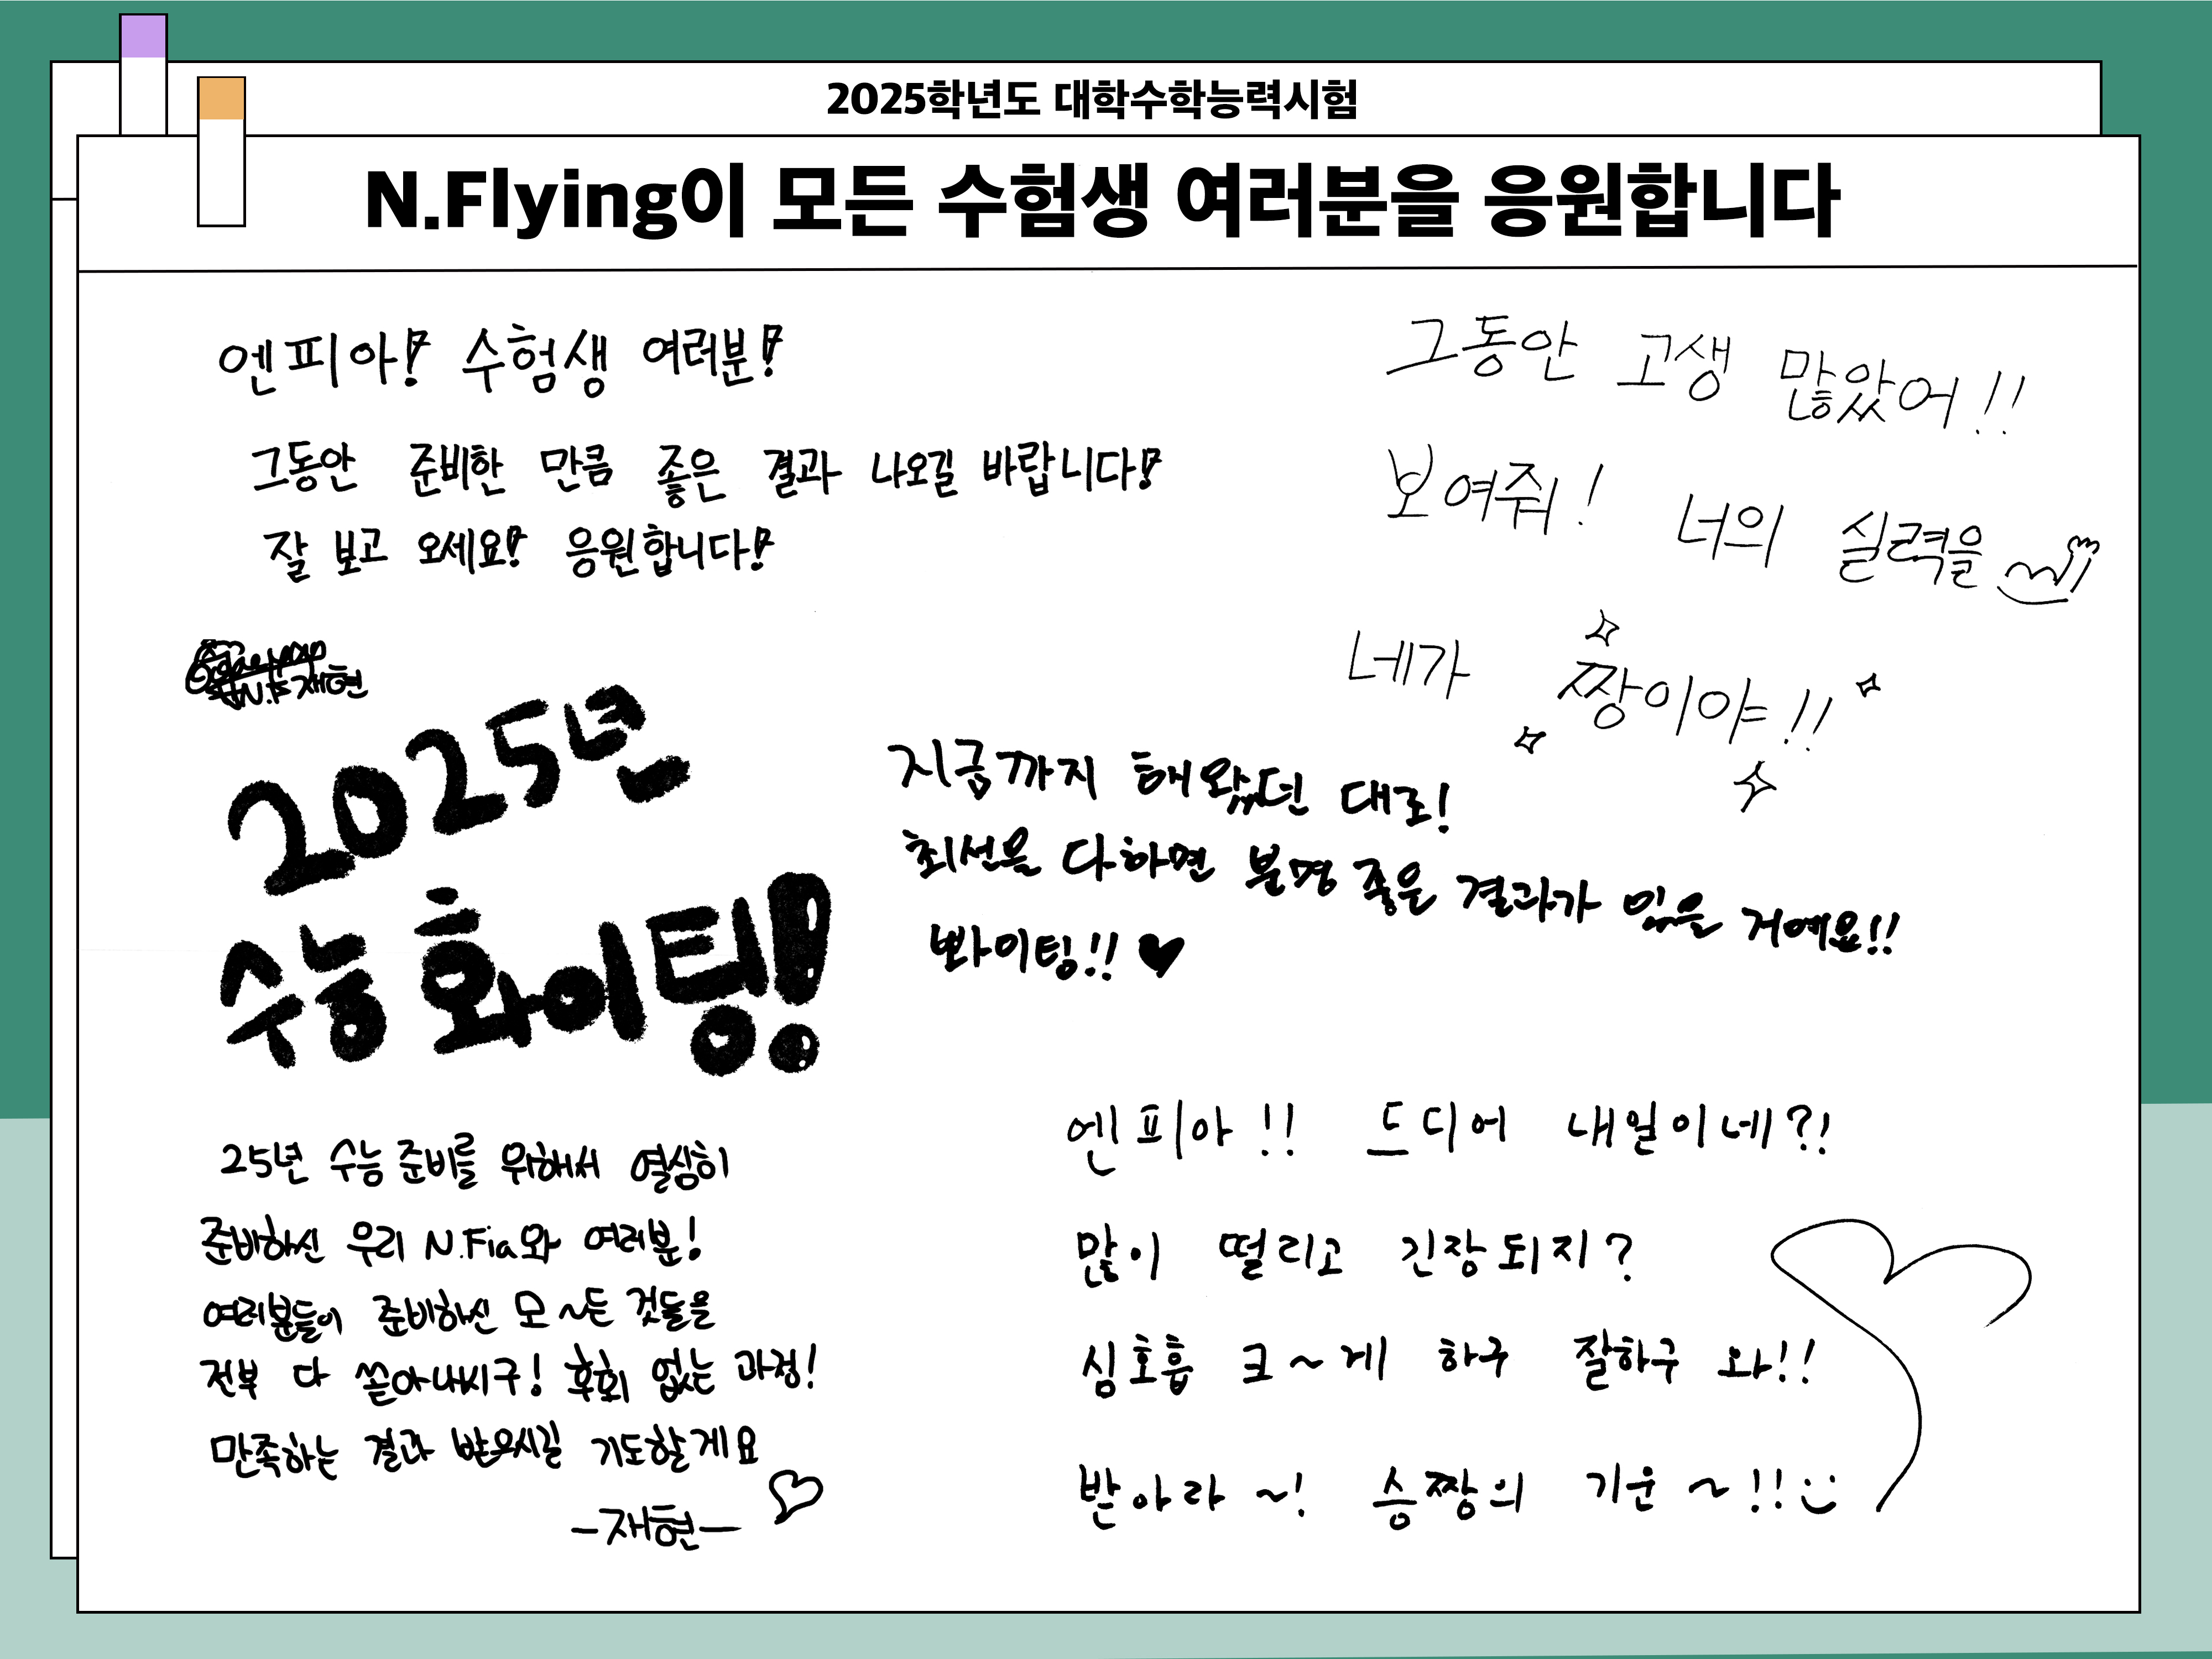 2025학년도 대학수학능력시험
N.Flying이 모든 수험생 여러분을 응원합니다
엔피아! 수험생 여러분!
그동안 준비한 만큼 좋은 결과 나오길 바랍니다!
잘 보고 오세요! 응원합니다!
그동안 고생 많았어!!
보여줘! 너의 실력을
네가 짱이야!!
N.F 재현
2025년
수능 화이팅!
지금까지 해왔던 대로!
최선을 다하면 분명 좋은 결과가 있을 거예요!!
뽜이팅!! ♥
25년 수능 준비를 위해서 열심히
준비하신 우리 N.Fia와 여러분!
여러분들이 준비하신 모~든 것들을
전부 다 쏟아내시구! 후회 없는 과정!
만족하는 결과 받으시길 기도할게요
-재현-
엔피아!! 드디어 내일이네?!
많이 떨리고 긴장되지?
심호흡 크~게 하구 잘하구 와!!
받아라~! 승짱의 기운~!!